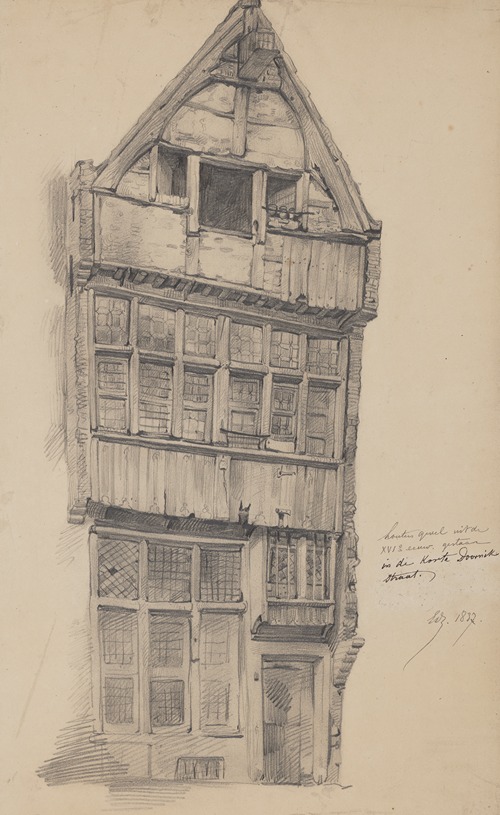 houten gevel uit de
XVIe eeuw. gestaan
in de Korte Doornik
straat.
1837.